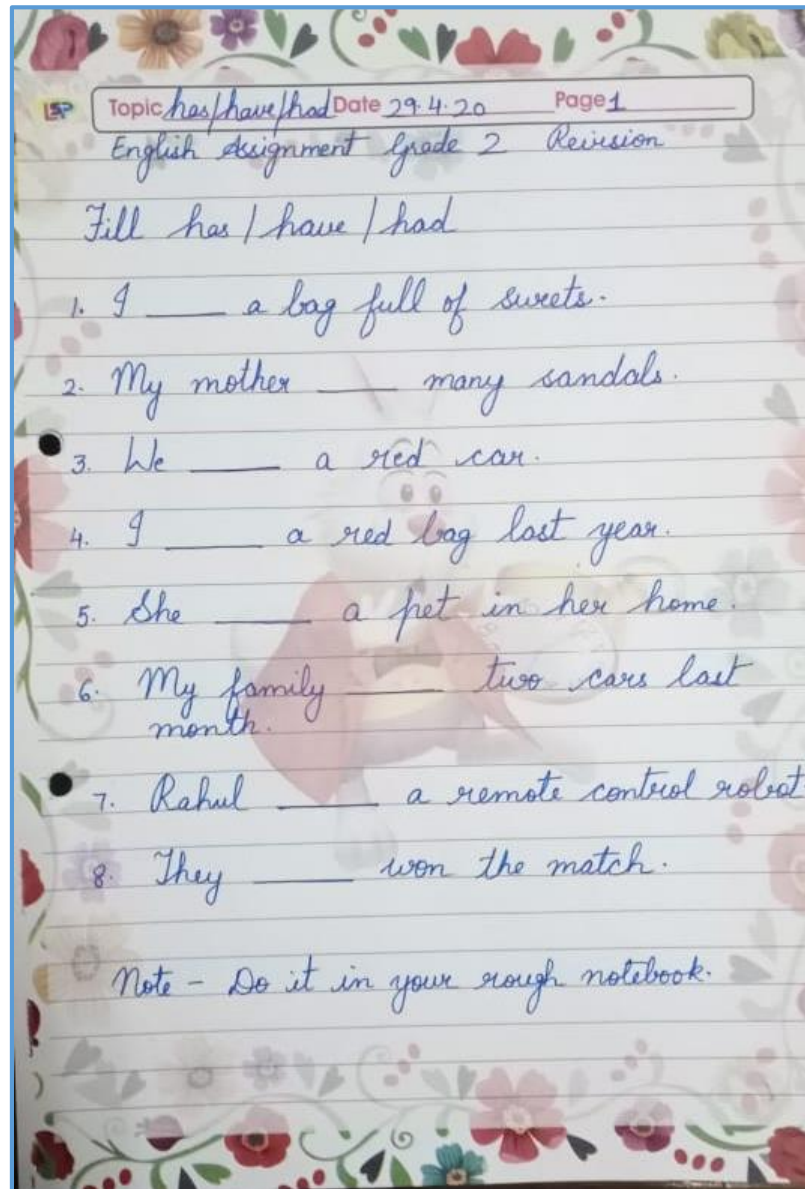 LSP Topic has/have/had Date 29.4.20 Page 1
English Assignment Grade 2 Revision
Fill has / have / had
1. I ____ a bag full of sweets.
2. My mother ____ many sandals.
3. We ____ a red car.
4. I ____ a red bag last year.
5. She ____ a pet in her home.
6. My family ____ two cars last
month.
7. Rahul ____ a remote control robot
8. They ____ won the match.
Note - Do it in your rough notebook.